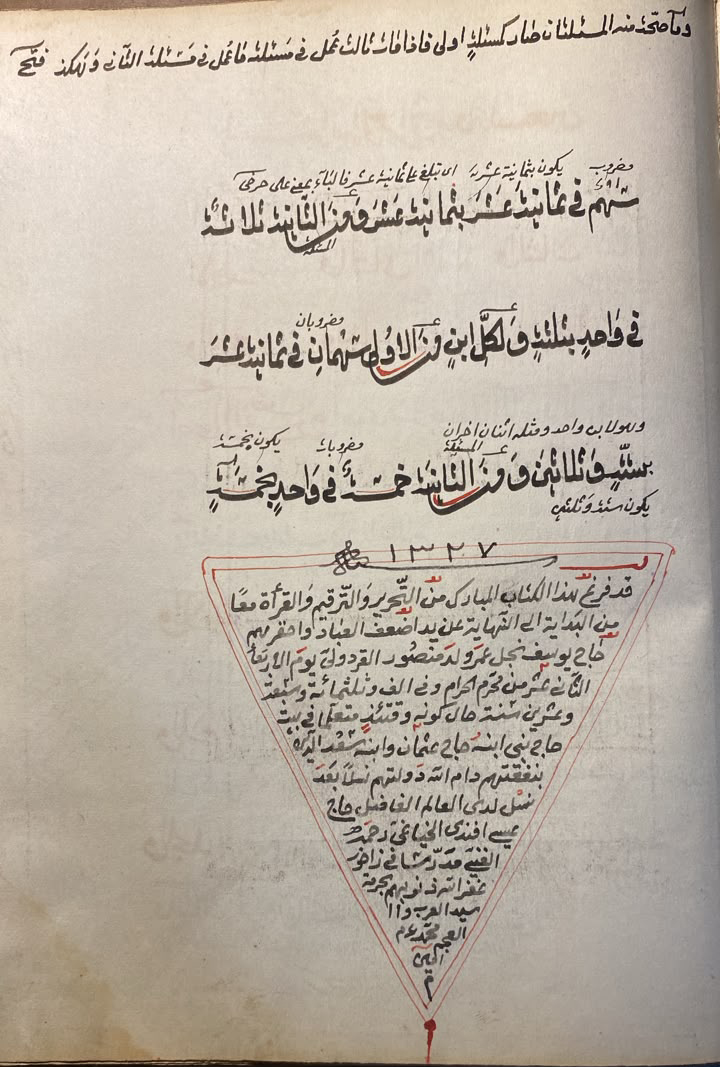 وما صحّت منه المسئلتان صار كمسئلةٍ اولى فاذا مات ثالث عُمل فى مسئلته ما عُمل فى مسئلة الثانى وهكذا فتح
مضروب يكون بثمانية عشر اى تبلغ ثمانية عشر فالباء بمعنى على
سَهْم فى ثمانيةَ عَشَرَ بثمانيةَ عَشَرَ وَمِنَ الثّانِيَةِ ثلاثةٌ
المسئلة
مضروبان
فى وَاحِدٍ بثلثةٍ وَلِكلّ ابنٍ مِنَ الاُولى سَهْمانِ فى ثمانيةَ عَشَرَ
وهو لابن واحد ومثله اثنان اخران المسئلة مضروبات يكون بخمسة
بستّةٍ وَثلاثينَ وَمِنَ الثّانِيَةِ خمسةٌ فى وَاحِدٍ بخمسَةٍ
يكون ستة وثلثين
١٣٢٧
قد فرغ هذا الكتاب المبارك من التّحرير والتّرقيم والقرأة معًا
من البداية الى النّهاية عن يد اضعف العباد واحقرهم
حاج يوسف نجل عمر ولد منصور القردولى يوم الاربعا
الثّانى عشر من محرّم الحرام وفى الف وثلثمائة وسبعة
وعشرين سنة حال كونه وقتئذٍ متعلّما فى بيت
حاج نبى ابنه حاج عثمان وابنه سعد الدين
بنفقتهم دام الله دولتهم نسلًا بعد
نسل لدى العالم الفاضل حاج
عيسى افندى
مدرّسا فى زاخو
غفر الله ذنوبهم بحرمة
سيد العرب وا
العجم محمّد
امين
م